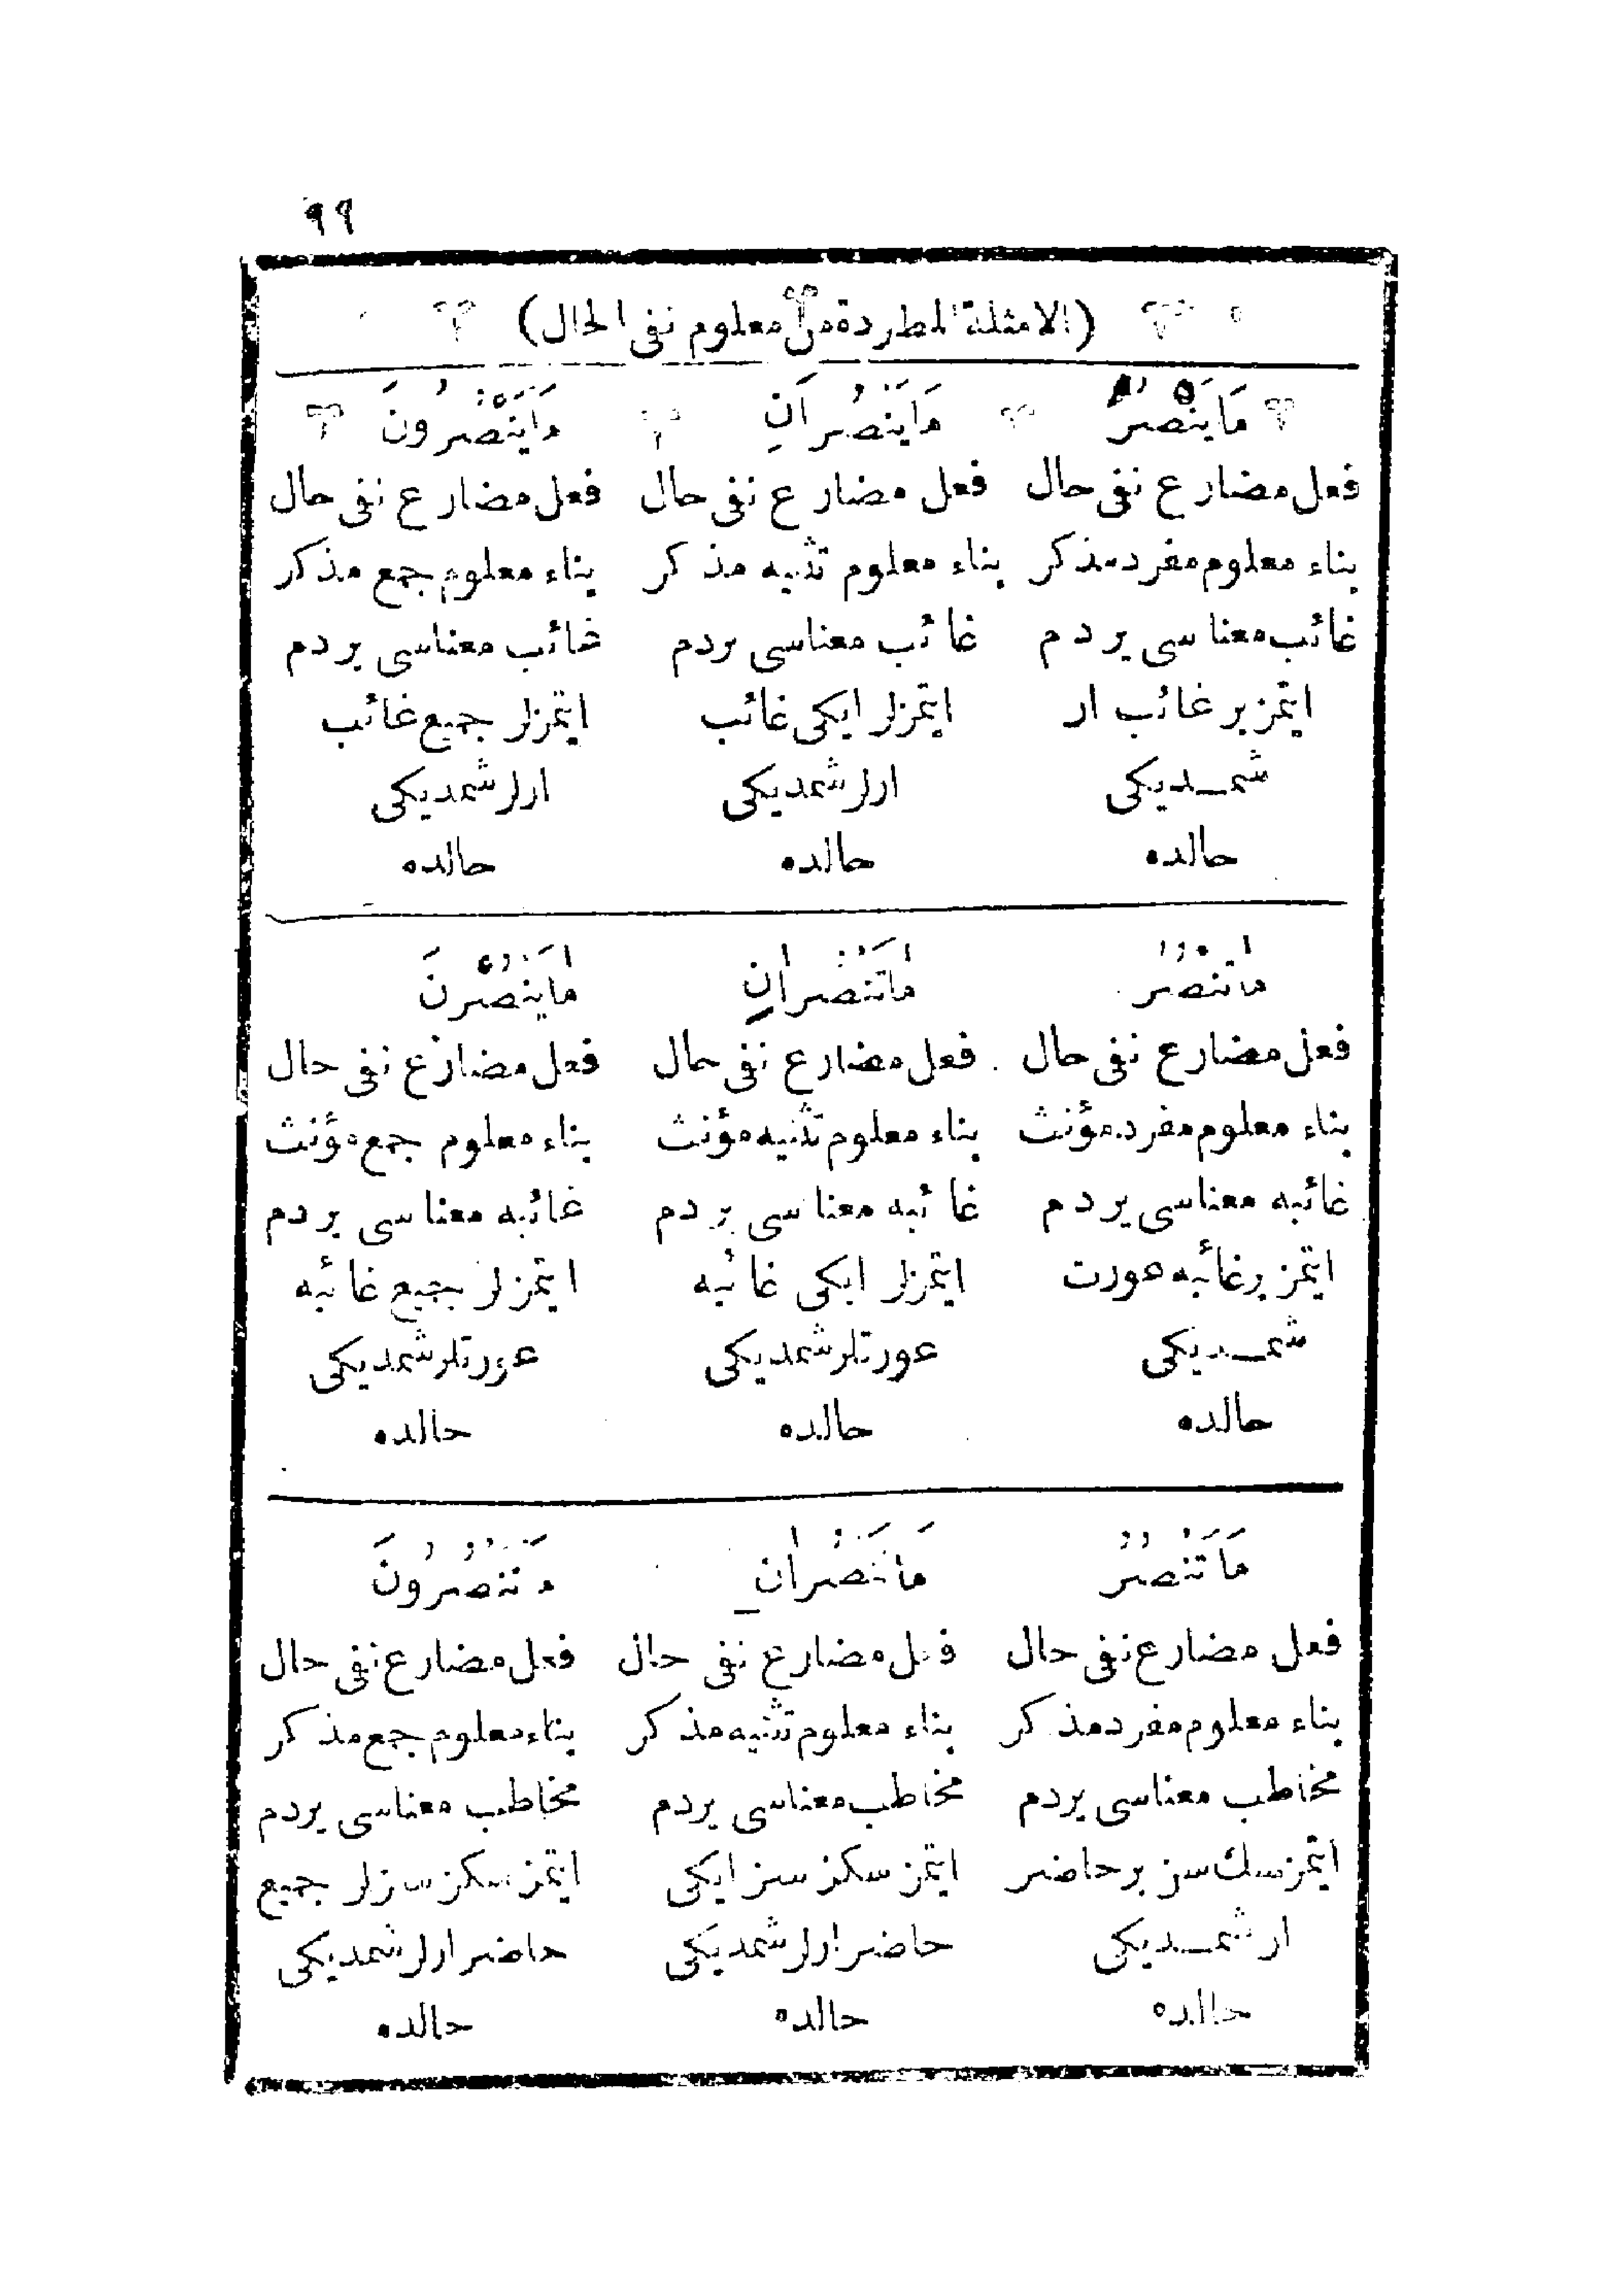 ٩٩
(الامثلة المطردة من معلوم نفی الحال)
مَا يَنْصُرُ
فعل مضارع نفی حال
بناء معلوم مفرد مذکر
غائب معناسی یردم
ایتمز بر غائب ار
شمـدیکی
حالده
مَا يَنْصُرَانِ
فعل مضارع نفی حال
بناء معلوم تثنیه مذکر
غائب معناسی یردم
ایتمزلر ایکی غائب
ارلر شمدیکی
حالده
مَا يَنْصُرُونَ
فعل مضارع نفی حال
بناء معلوم جمع مذکر
غائب معناسی یردم
ایتمزلر جمیع غائب
ارلر شمدیکی
حالده
مَا تَنْصُرُ
فعل مضارع نفی حال
بناء معلوم مفرد مؤنث
غائبه معناسی یردم
ایتمز بر غائبه عورت
شمـدیکی
حالده
مَا تَنْصُرَانِ
فعل مضارع نفی حال
بناء معلوم تثنیه مؤنث
غائبه معناسی یردم
ایتمزلر ایکی غائبه
عورتلر شمدیکی
حالده
مَا يَنْصُرْنَ
فعل مضارع نفی حال
بناء معلوم جمع مؤنث
غائبه معناسی یردم
ایتمزلر جمیع غائبه
عورتلر شمدیکی
حالده
مَا تَنْصُرُ
فعل مضارع نفی حال
بناء معلوم مفرد مذکر
مخاطب معناسی یردم
ایتمزسك سز بر حاضر
ار شمـدیکی
حالده
مَا تَنْصُرَانِ
فعل مضارع نفی حال
بناء معلوم تثنیه مذکر
مخاطب معناسی یردم
ایتمز سکز سز ایکی
حاضر ارلر شمدیکی
حالده
مَا تَنْصُرُونَ
فعل مضارع نفی حال
بناء معلوم جمع مذکر
مخاطب معناسی یردم
ایتمز سکز سزلر جمیع
حاضر ارلر شمدیکی
حالده